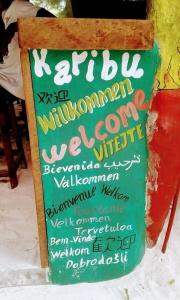 Karibu
欢迎
Willkommen
welcome
VÍTEJTE
Bievenida ترحيب
Valkommen
Bienvenue Welkom
Velkommen
Tervetuloa
Bem-Vindo
Welkom 歡迎
Dobrodošli